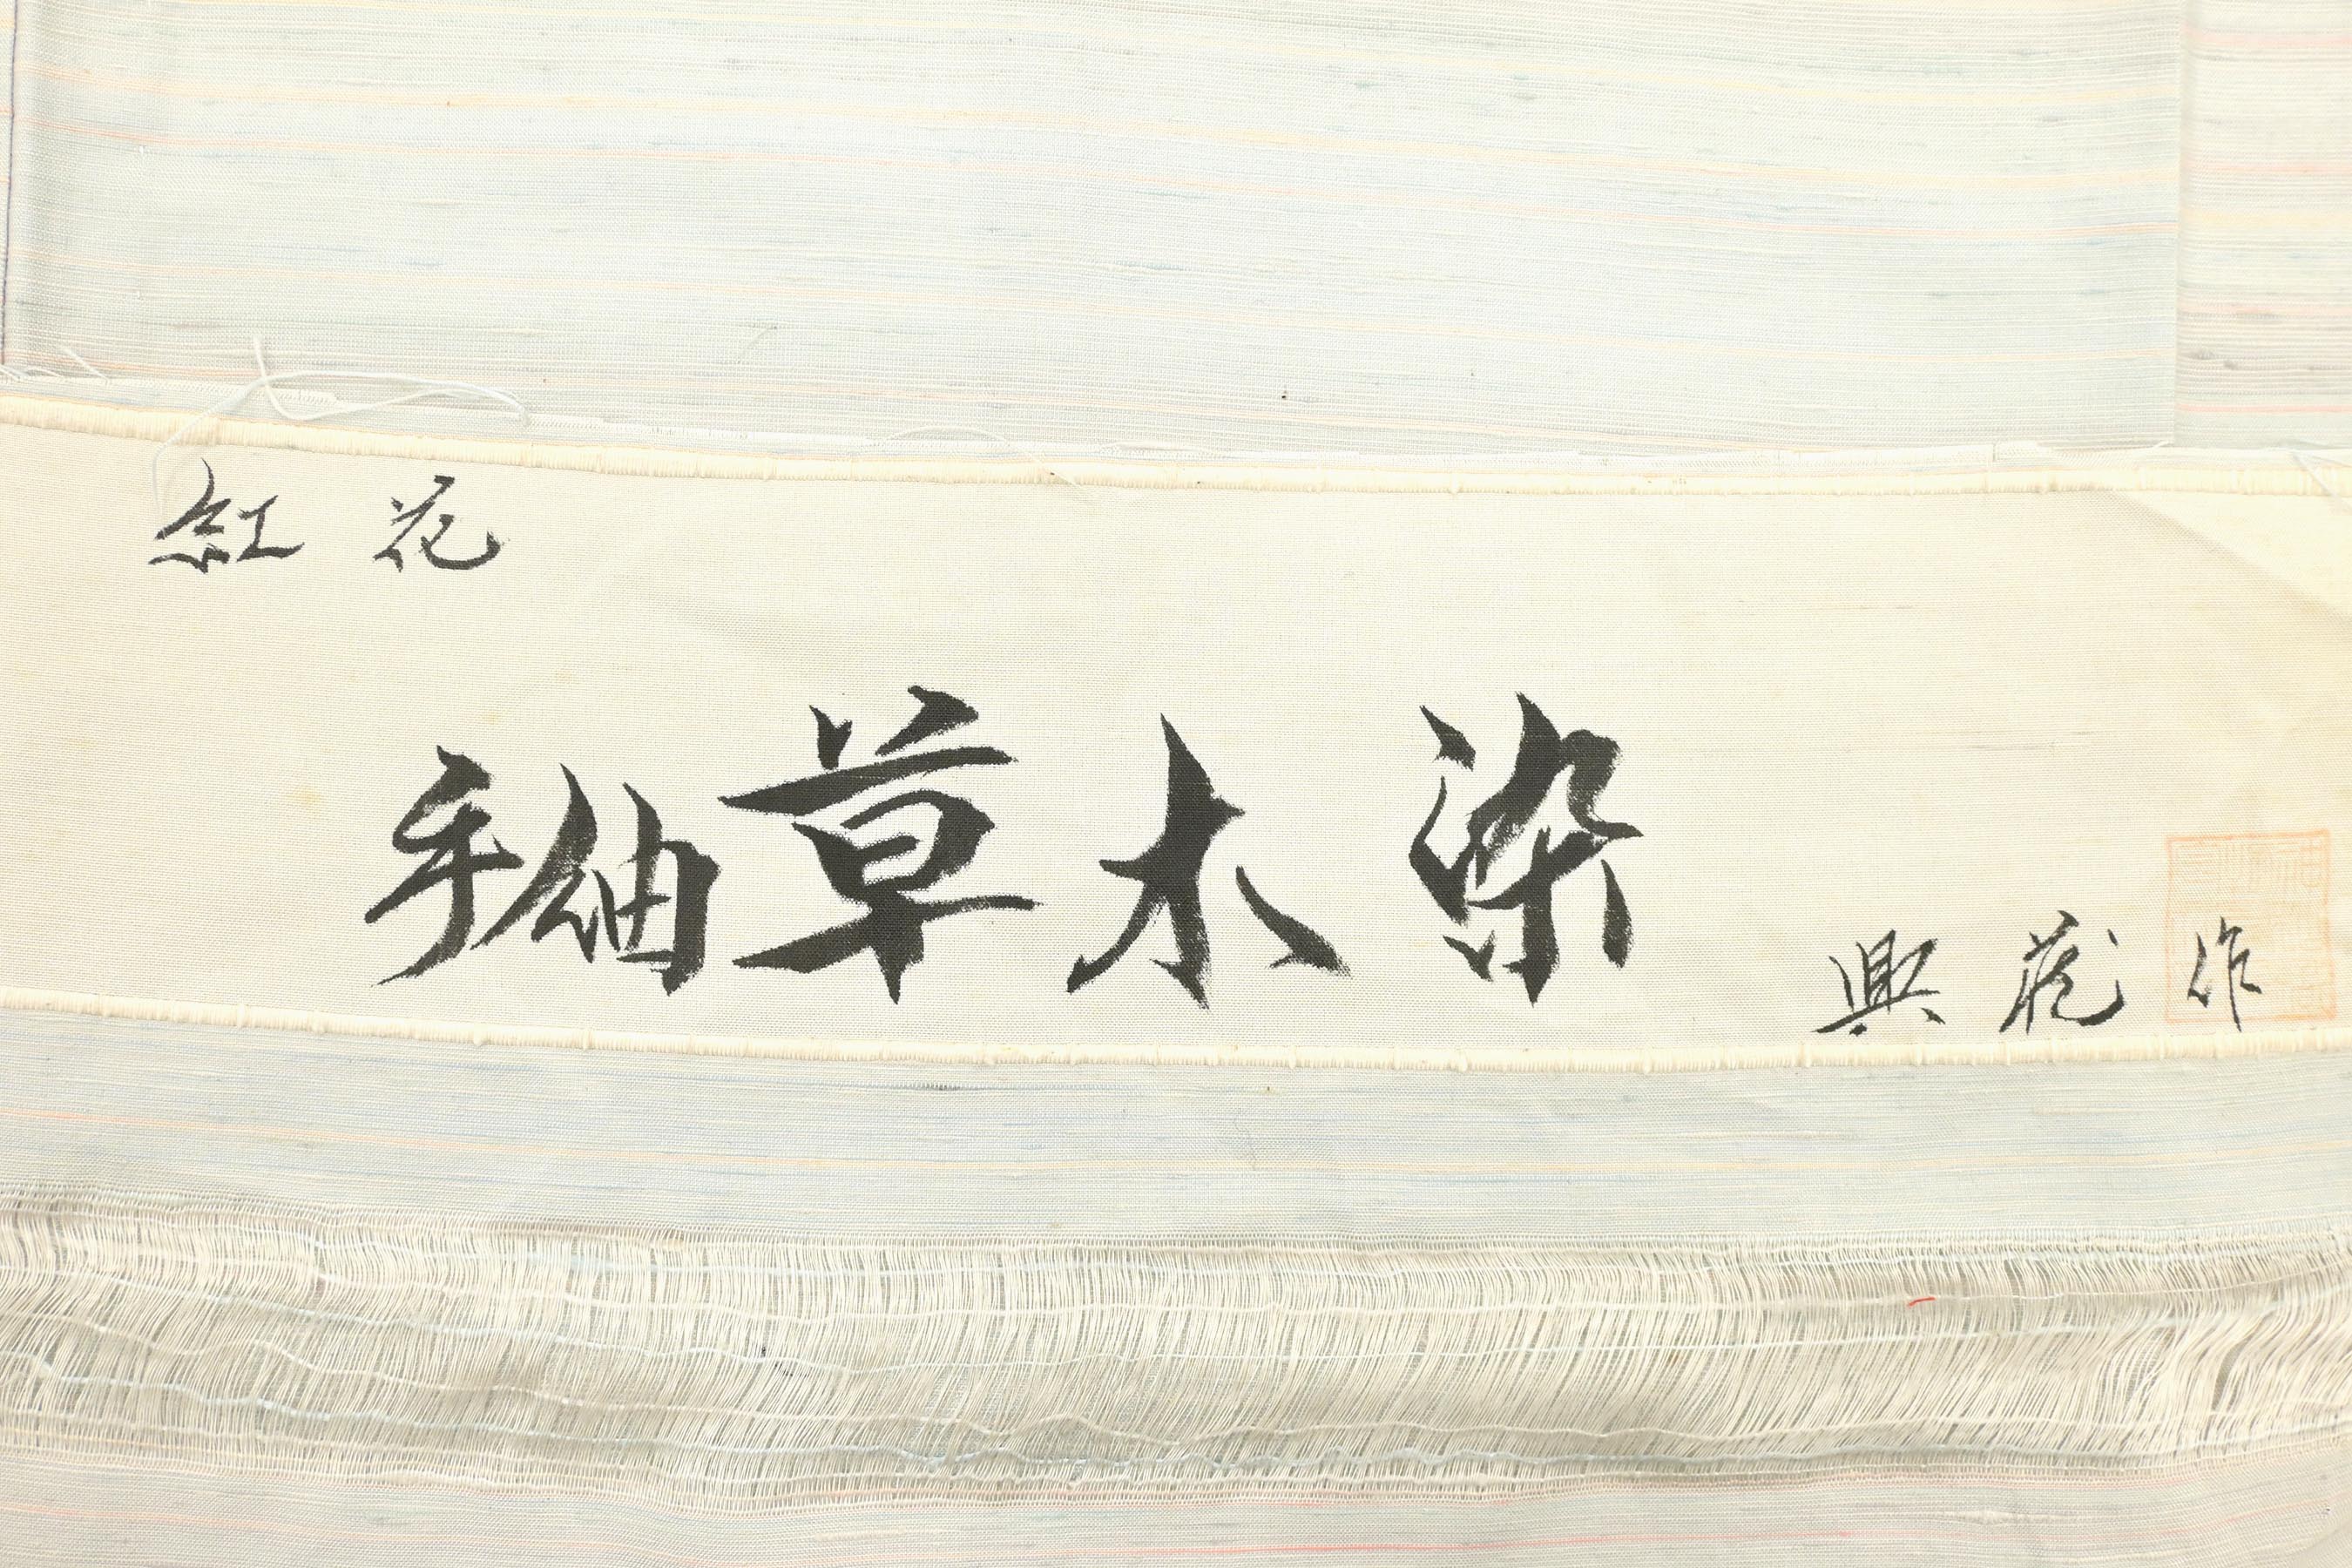 紅花
手紬草木染
興蔵作